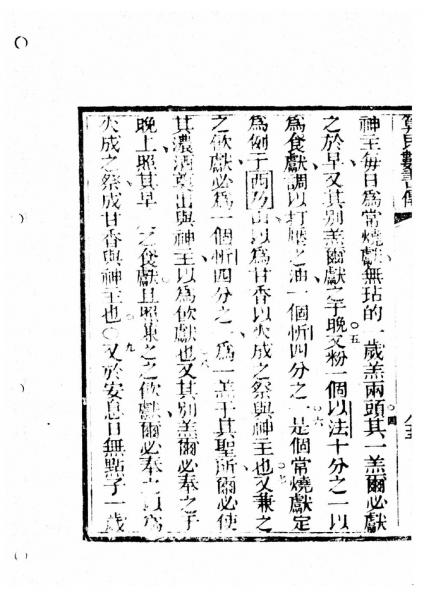 神主每日為常燒獻無玷的一歲羔兩頭其一羔爾必獻
之於早又其別羔爾獻之于晚又粉一個以法十分之一以
為食獻調以打壓之油一個忻四分之一是個常燒獻定
為例于西乃山以為甘香以火成之祭與神主也又兼之
之飲獻必為一個忻四分之一為一羔于其聖所爾必使
其濃酒奠出與神主以為飲獻也又其別羔爾必奉之于
晚上照其早之食獻且照兼之之飲獻爾必奉之以為
火成之祭成甘香與神主也○又於安息日無點了一歲